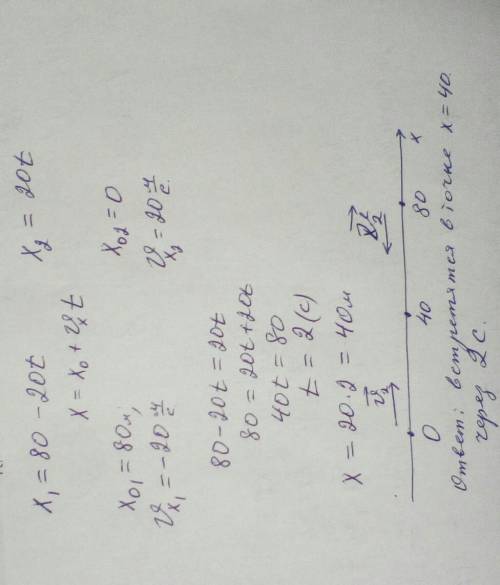 x₁ = 80 - 20t    x₂ = 20t
x = x₀ + υₓt
x₀₁ = 80м,    x₀₂ = 0
υₓ₁ = -20 м/с    υₓ₂ = 20 м/с.
80 - 20t = 20t
80 = 20t + 20t
40t = 80
t = 2 (с)
x = 20·2 = 40м
υ₂
0 40 80 x
Ответ: встретятся в точке x = 40.
через 2с.